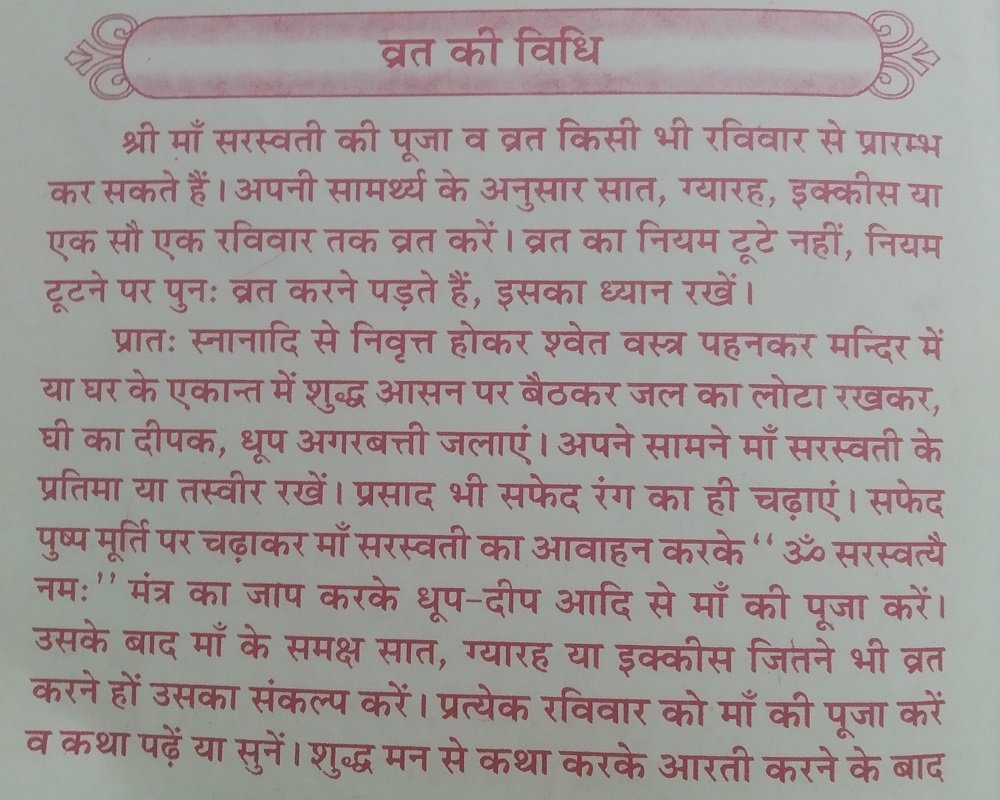 व्रत की विधि
श्री माँ सरस्वती की पूजा व व्रत किसी भी रविवार से प्रारम्भ
कर सकते हैं। अपनी सामर्थ्य के अनुसार सात, ग्यारह, इक्कीस या
एक सौ एक रविवार तक व्रत करें। व्रत का नियम टूटे नहीं, नियम
टूटने पर पुनः व्रत करने पड़ते हैं, इसका ध्यान रखें।
प्रातः स्नानादि से निवृत्त होकर श्वेत वस्त्र पहनकर मन्दिर में
या घर के एकान्त में शुद्ध आसन पर बैठकर जल का लोटा रखकर,
घी का दीपक, धूप अगरबत्ती जलाएं। अपने सामने माँ सरस्वती के
प्रतिमा या तस्वीर रखें। प्रसाद भी सफेद रंग का ही चढ़ाएं। सफेद
पुष्प मूर्ति पर चढ़ाकर माँ सरस्वती का आवाहन करके “ ॐ सरस्वत्यै
नमः” मंत्र का जाप करके धूप-दीप आदि से माँ की पूजा करें।
उसके बाद माँ के समक्ष सात, ग्यारह या इक्कीस जितने भी व्रत
करने हों उसका संकल्प करें। प्रत्येक रविवार को माँ की पूजा करें
व कथा पढ़ें या सुनें। शुद्ध मन से कथा करके आरती करने के बाद